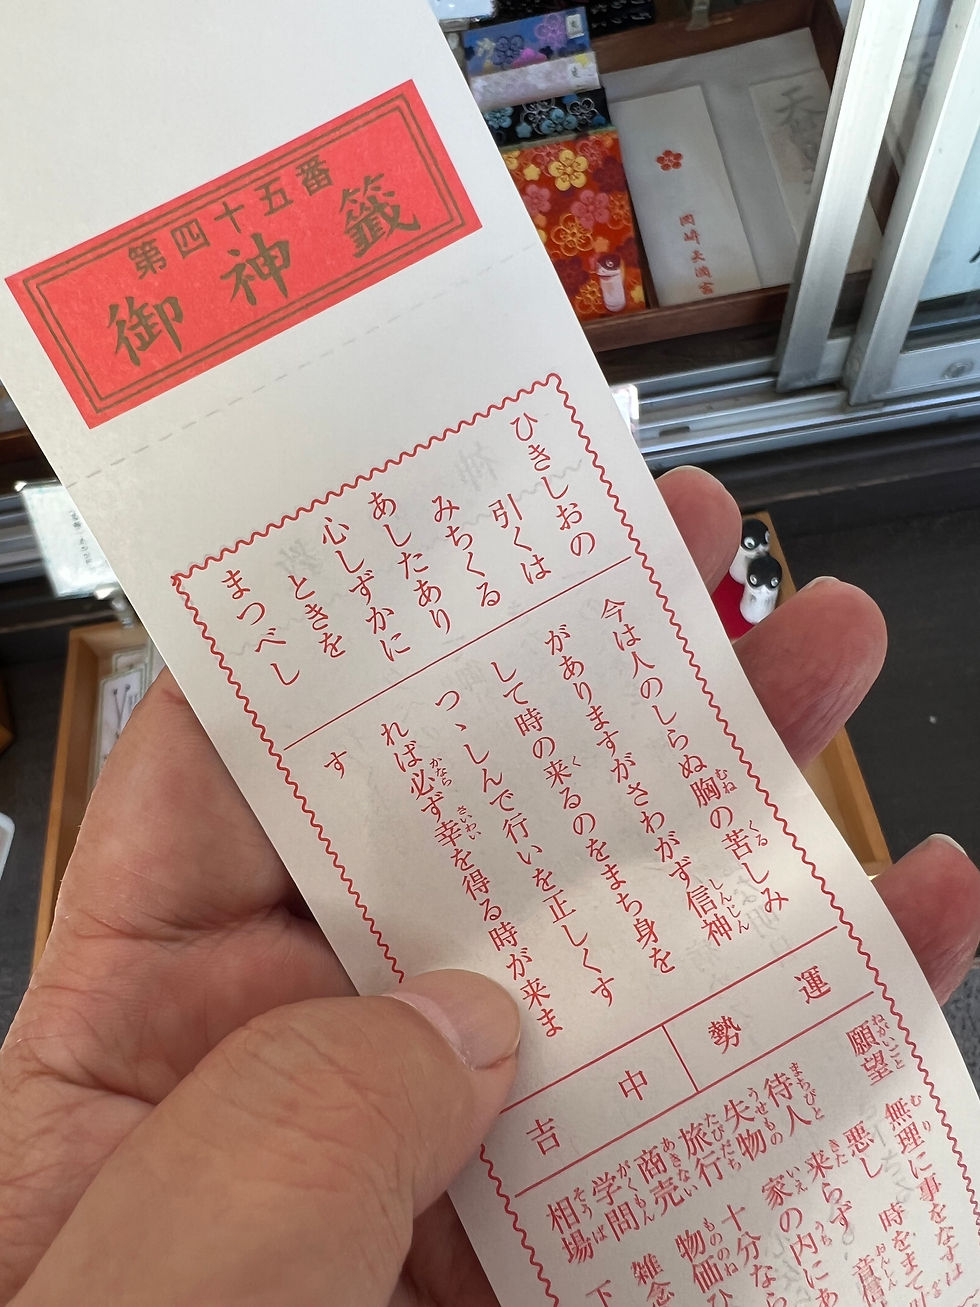 第四十五番
御神籤
ひきしおの
引くは
みちくる
あしたあり
心しずかに
ときを
まつべし
今は人のしらぬ胸の苦しみ
がありますがさわがず信神
して時の来るのをまち身を
つゝしんで行いを正しくす
れば必ず幸を得る時が来ま
す
運勢
中吉
願望 無理に事をなすは
悪し 時をまて
待人 来らず 音信
失物 家の内にあ
旅行 十分なら
商売 物価ひ
学問 雑念
相場 下
岡崎天満宮